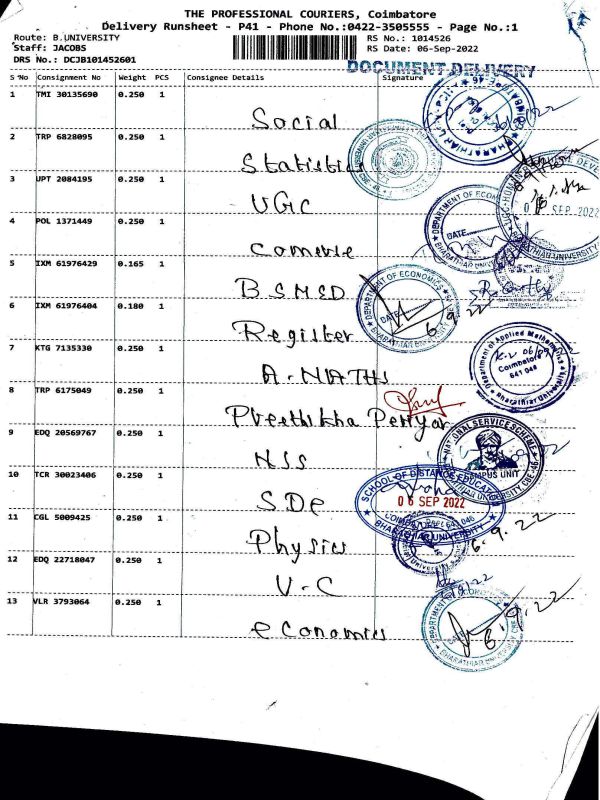 THE PROFESSIONAL COURIERS, Coimbatore
Delivery Runsheet - P41 - Phone No.:0422-3505555 - Page No.:1
Route: B.UNIVERSITY RS No.: 1014526
Staff: JACOBS RS Date: 06-Sep-2022
DRS No.: DCJB101452601
DOCUMENT DELIVERY
S No Consignment No Weight PCS Consignee Details Signature
1 TMI 30135690 0.250 1
Social
2 TRP 6828095 0.250 1
Statistics
3 UPT 2084195 0.250 1
UGC
0 SEP 2022
4 POL 1371449 0.250 1
DEPARTMENT OF ECONO
DATE
BHARATHIAR UNIVERSITY
5 IXM 61976429 0.165 1
BSMED
DEPARTMENT OF ECONOMICS
DATE
6.9.22
6 IXM 61976404 0.180 1
Register
7 KTG 7135330 0.250 1
A-MATHS
Department of Applied Mathematics
Coimbatore
641 046
Bharathiar University
8 TRP 6175049 0.250 1
Preethikha Periyar
9 EDQ 20569767 0.250 1
NSS
NATIONAL SERVICE SCHEME
CAMPUS UNIT
10 TCR 30023406 0.250 1
SDE
SCHOOL OF DISTANCE EDUCATION
06 SEP 2022
BHARATHIAR UNIVERSITY
11 CGL 5009425 0.250 1
Physics
6.9.22
12 EDQ 22718047 0.250 1
V-C
13 VLR 3793064 0.250 1
economics
6.9.22
BHARATHIAR UNIVERSITY